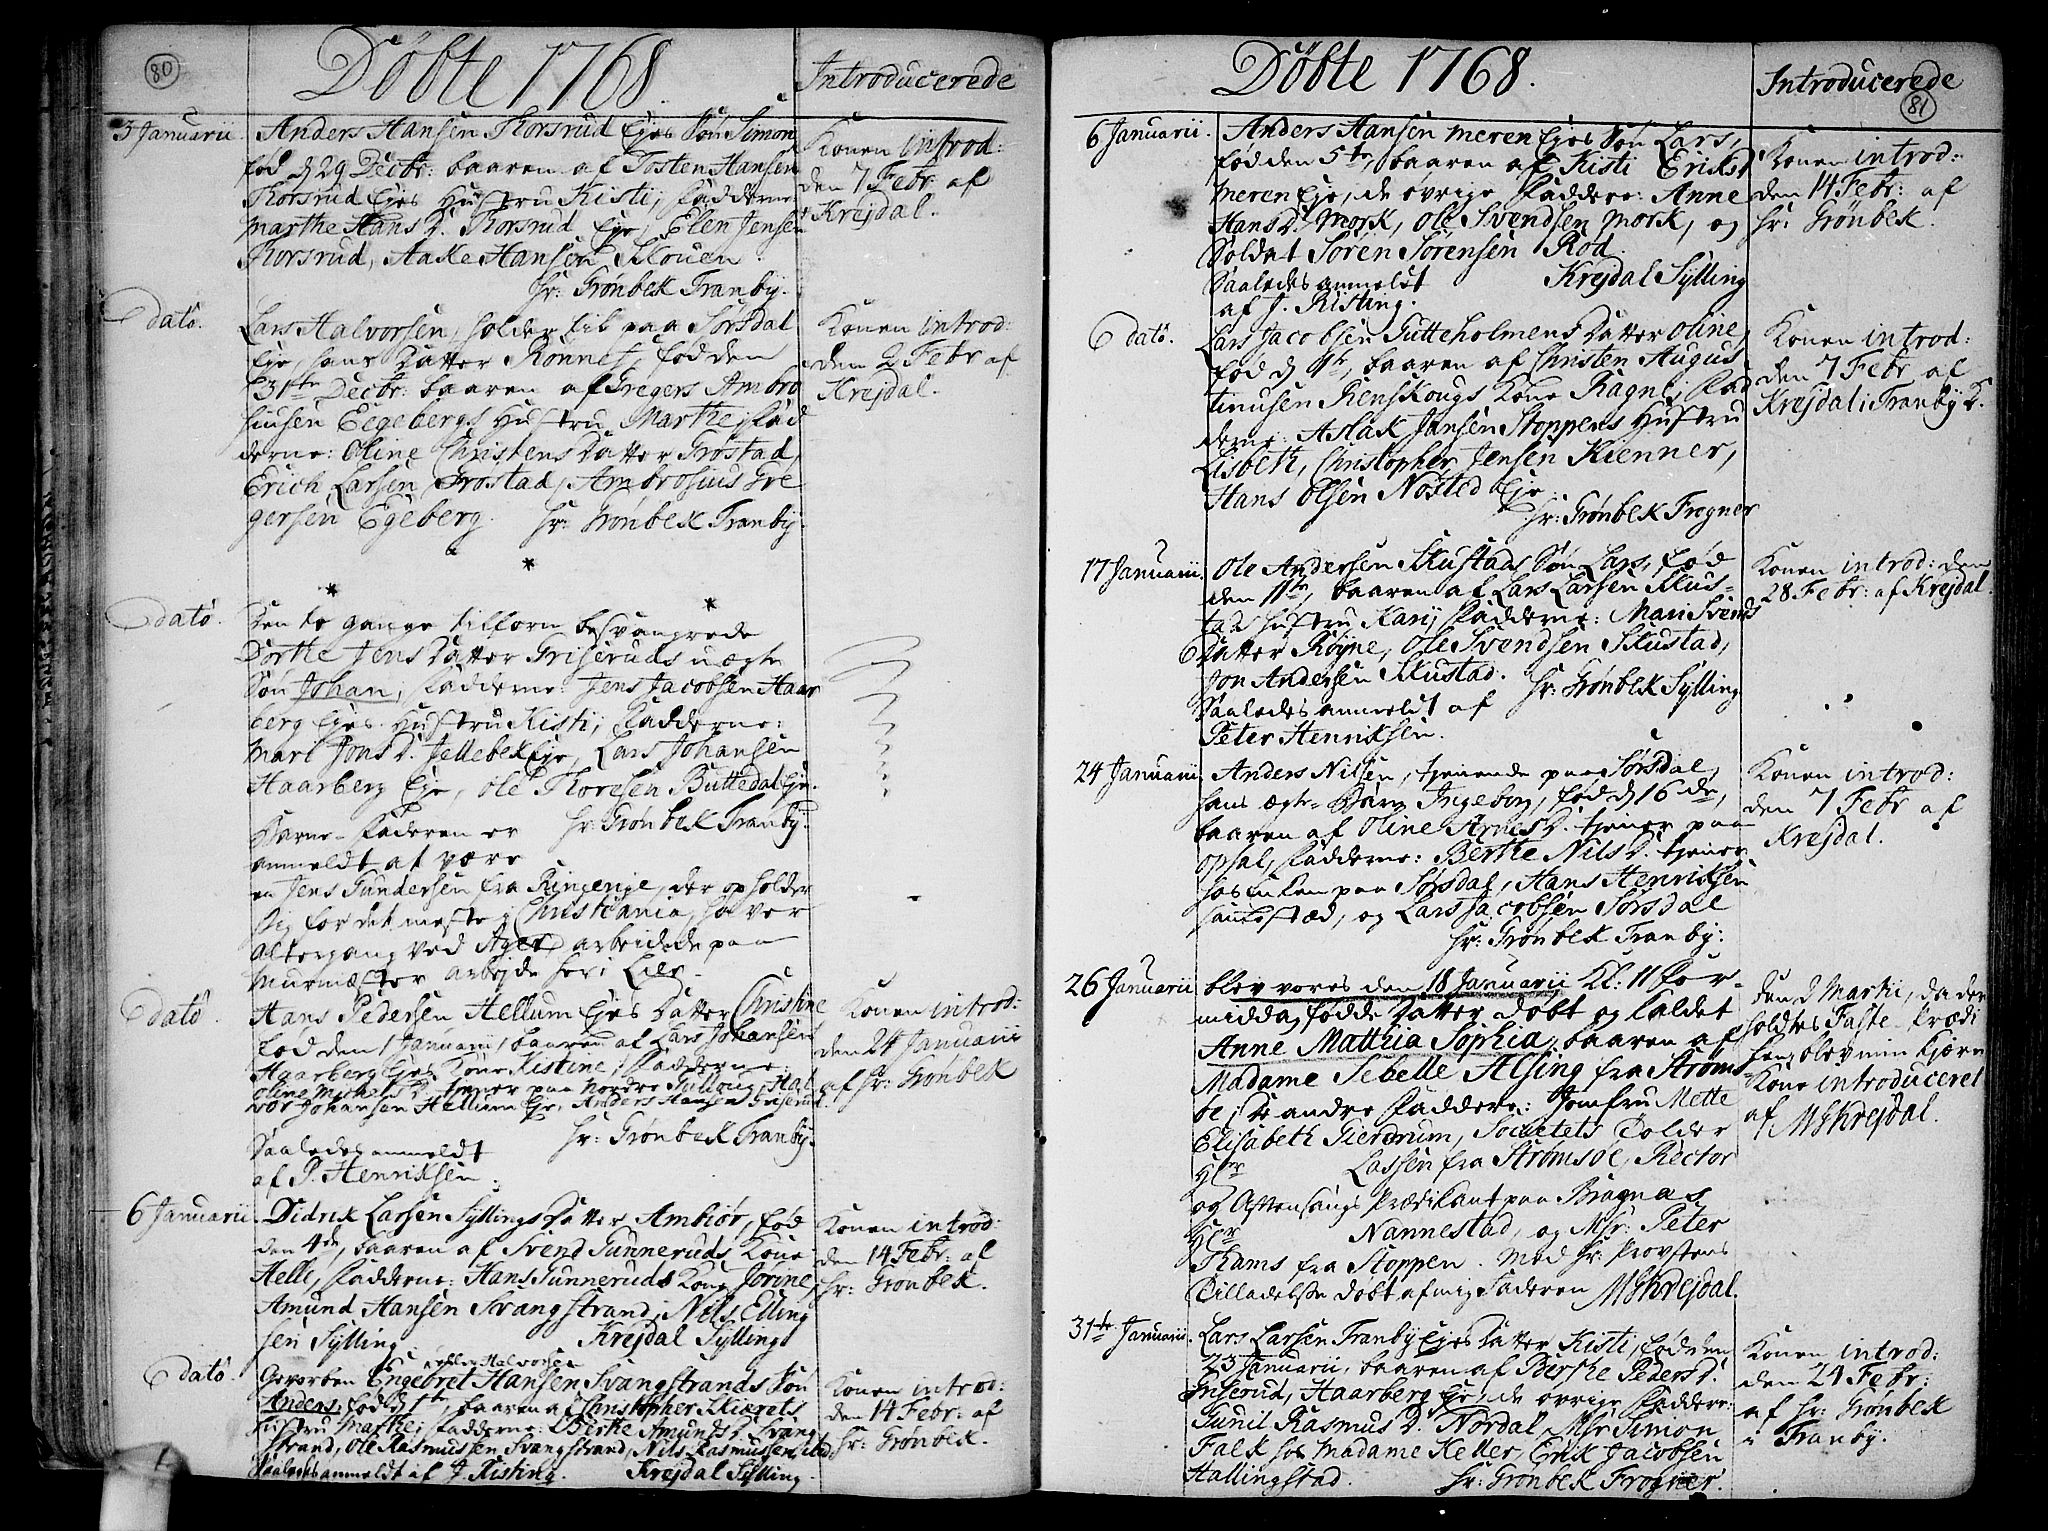 80
Döbte 1768.
Introducerede
3 Januarii.
Anders Hansen Thorsrud Ejes Søn Simon
fød d 29 Decbr: baaren af Tosten Hansen
Thorsrud Ejes Hustru Kisti, Fadderne
Marthe Hans D. Thorsrud Eje, Elen Jensen
Thorsrud, Aake Hansen Skouen
Hr: Grönbek Tranby.
Konen introd:
den 7 Febr af
Krejdal.
dato.
Lars Halvorsen, holder til paa Sørsdal
Eje, hans Datter Ronnef, fød den
31te Decbr: baaren af Gregers Ambro
siusen Eegebergs Hustru Marthe, Fad
derne: Oline Christens Datter Grostad,
Erich Larsen Grostad, Ambrosius Gre
gersen Egeberg. Hr: Grönbek Tranby.
Konen introd:
den 2 Febr af
Krejdal.
dato.
Den to gange tilforn besvangrede
Dorthe Jens Datter Griseruds uægte
Søn Johan, Fadderne: Jens Jacobsen Haar
berg Ejes Hustru Kisti, Fadderne:
Mari Jons D. Jellebek Eje, Lars Johansen
Haarberg Eje, Ole Thoresen Buttedal Eje.
Barne-Faderen er Hr: Grönbek Tranby.
anmeldt at være
en Jens Gundersen fra Ringerige, der opholder
sig for det meste i Christiania, haver
Altergang ved Ager arbeidede paa
Murmester arbejde her i Lier.
dato.
Hans Pedersen Hellum Ejes Datter Christine
fød den 1 Januarii, baaren af Lars Johansen
Haarberg Ejes Kone Kistine, Fadderne:
Oline Michels D. tjener paa Nordre Gulloug, Hal
vor Johansen Hellum Eje, Anders Hansen Griserud.
Saaledes anmeldt Hr: Grönbek Tranby.
af P. Henriksen.
Konen introd:
den 24 Januarii
af Hr: Grönbek
6 Januarii.
Didrik Larsen Syllings Datter Ambiør, fød
den 4de, baaren af Svend Gunneruds Kone
Helli, Fadderne: Hans Gunneruds Kone Jörine,
Amund Hansen Svangstrand, Nils Elling
sen Sylling. Krejdal Sylling
Konen introd:
den 14 Febr: af
Hr: Grönbek.
dato.
eller Halvorsen
Gevorben Engebret Hansen Svangstrands Søn
Anders, fød d 1te, baaren af Christopher Skierets
Hustru Marthe, Fadderne: Berthe Amunds D. Svang
strand, Ole Rasmussen Svangstrand, Nils Rasmussen ibid
Saaledes anmeldt af J. Risting. Krejdal Sylling.
Konen introd:
den 14 Febr: af
Hr: Grönbek.
Döbte 1768.
Introducerede
81
6 Januarii.
Anders Hansen Meren Ejes Søn Lars,
fød den 5te, baaren af Kisti Eriks D
Meren Eje, de øvrige Faddere: Anne
Hans D. Mork, Ole Svendsen Mork, og
Soldat Sören Sörensen Rod.
Saaledes anmeldt Krejdal Sylling
af J. Risting.
Konen introd:
den 14 Febr: af
Hr: Grönbek.
dato.
Lars Jacobsen Gutteholmens Datter Oline,
fød d 1te, baaren af Christen Augus
tinusen Renskougs Kone Ragni, Fad
derne: Aslak Jansen Stoppens Hustru
Lisbeth, Christopher Jensen Kienner,
Hans Olsen Nosted Eje
Hr: Grönbek Frogner
Konen introd:
den 7 Febr af
Krejdal i Tranby K.
17 Januarii.
Ole Andersen Skustads Søn Lars, fød
den 11te, baaren af Lars Larsen Skus-
tads Hustru Kari, Fadderne: Mari Svends
Datter Røyne, Ole Svendsen Skustad,
Jon Andersen Skustad. Hr: Grönbek Sylling
Saaledes anmeldt af
Peter Henriksen.
Konen introd: den
28 Febr: af Krejdal.
24 Januarii
Anders Nilsen, tjenende paa Sørsdal,
hans ægte-Barn Ingeborg, fød d 16 de,
baaren af Oline Arnes D. tjener paa
Opsal, Fadderne: Berthe Nils D. tjener
hos Enken paa Sørsdal, Hans Henriksen
sammested, og Lars Jacobsen Sørsdal
Hr: Grönbek Tranby.
Konen introd:
den 7 Febr af
Krejdal.
26 Januarii
blev vores den 18 Januarii Kl: 11 For-
middag fødde Datter döbt og kaldet
Anne Matthia Sophia, baaren af
Madame Sebelle Alsing fra Ströms-
öe, De andre Faddere: Jomfru Mette
Elisabeth Gierdrum, Societets Tolder
Hr Lassen fra Strømsøe, Rector
og Aftensangs Prædikant paa Bragnæs
Hr Nannestad, og Msr: Peter
Thams fra Stoppen. Med Hr: Provstens
Tilladelse döbt af mig Faderen MS Krejdal.
den 2 Martii, da der
holdtes Faste-Prædi
ken, blev min kjære
Kone introduceret
af MS Krejdal.
31te Januarii.
Lars Larsen Tranby Ejes Datter Kisti, fød den
23 Januarii, baaren af Berthe Peders D.
Griserud, Haarberg Eje, de øvrige Faddere:
Gunil Rasmus D. Nordal, Msr Simon
Falk hos Madame Keller, Erik Jacobsen
Hallingstad. Hr: Grönbek Frogner.
Konen introd:
den 24 Febr:
af Hr: Grönbek
i Tranby.